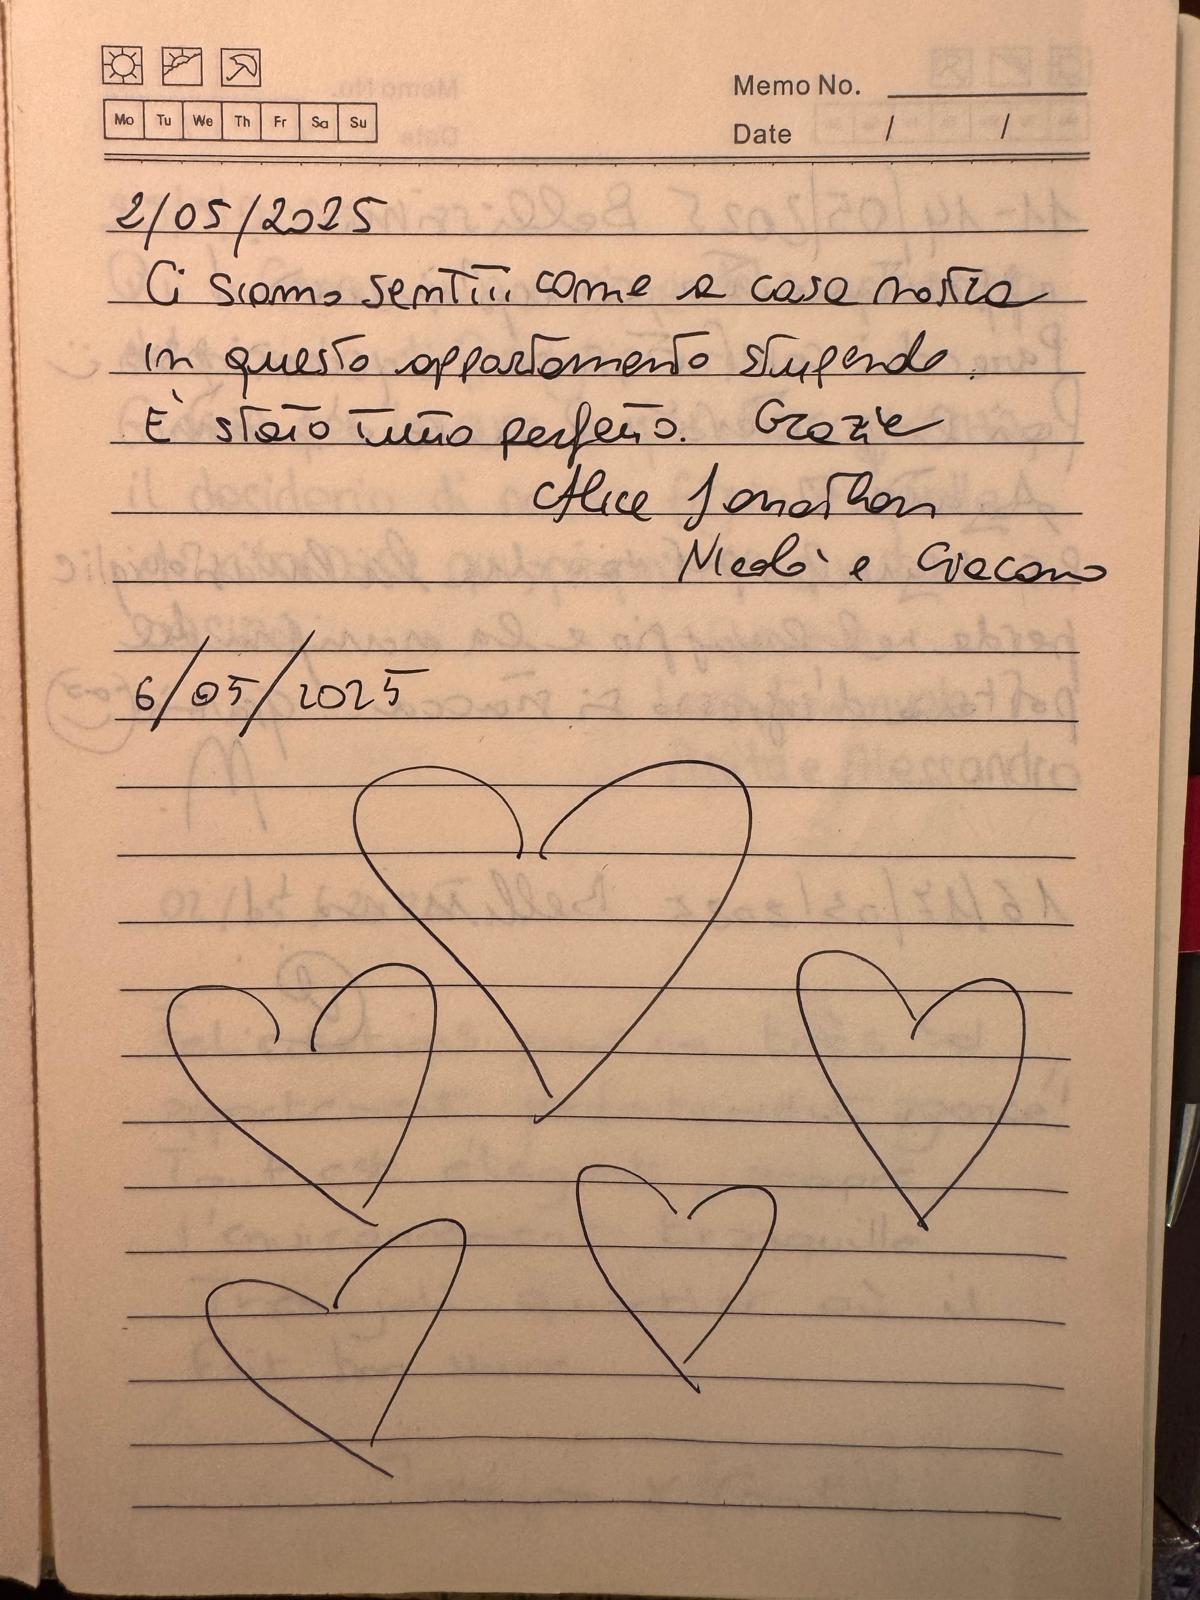 Memo No.
Mo Tu We Th Fr Sa Su
Date / /
2/05/2025
Ci siamo sentiti come a casa nostra
in questo appartamento stupendo.
È stato tutto perfetto. Grazie
Alice Jonathan
e Giacomo
6/05/2025